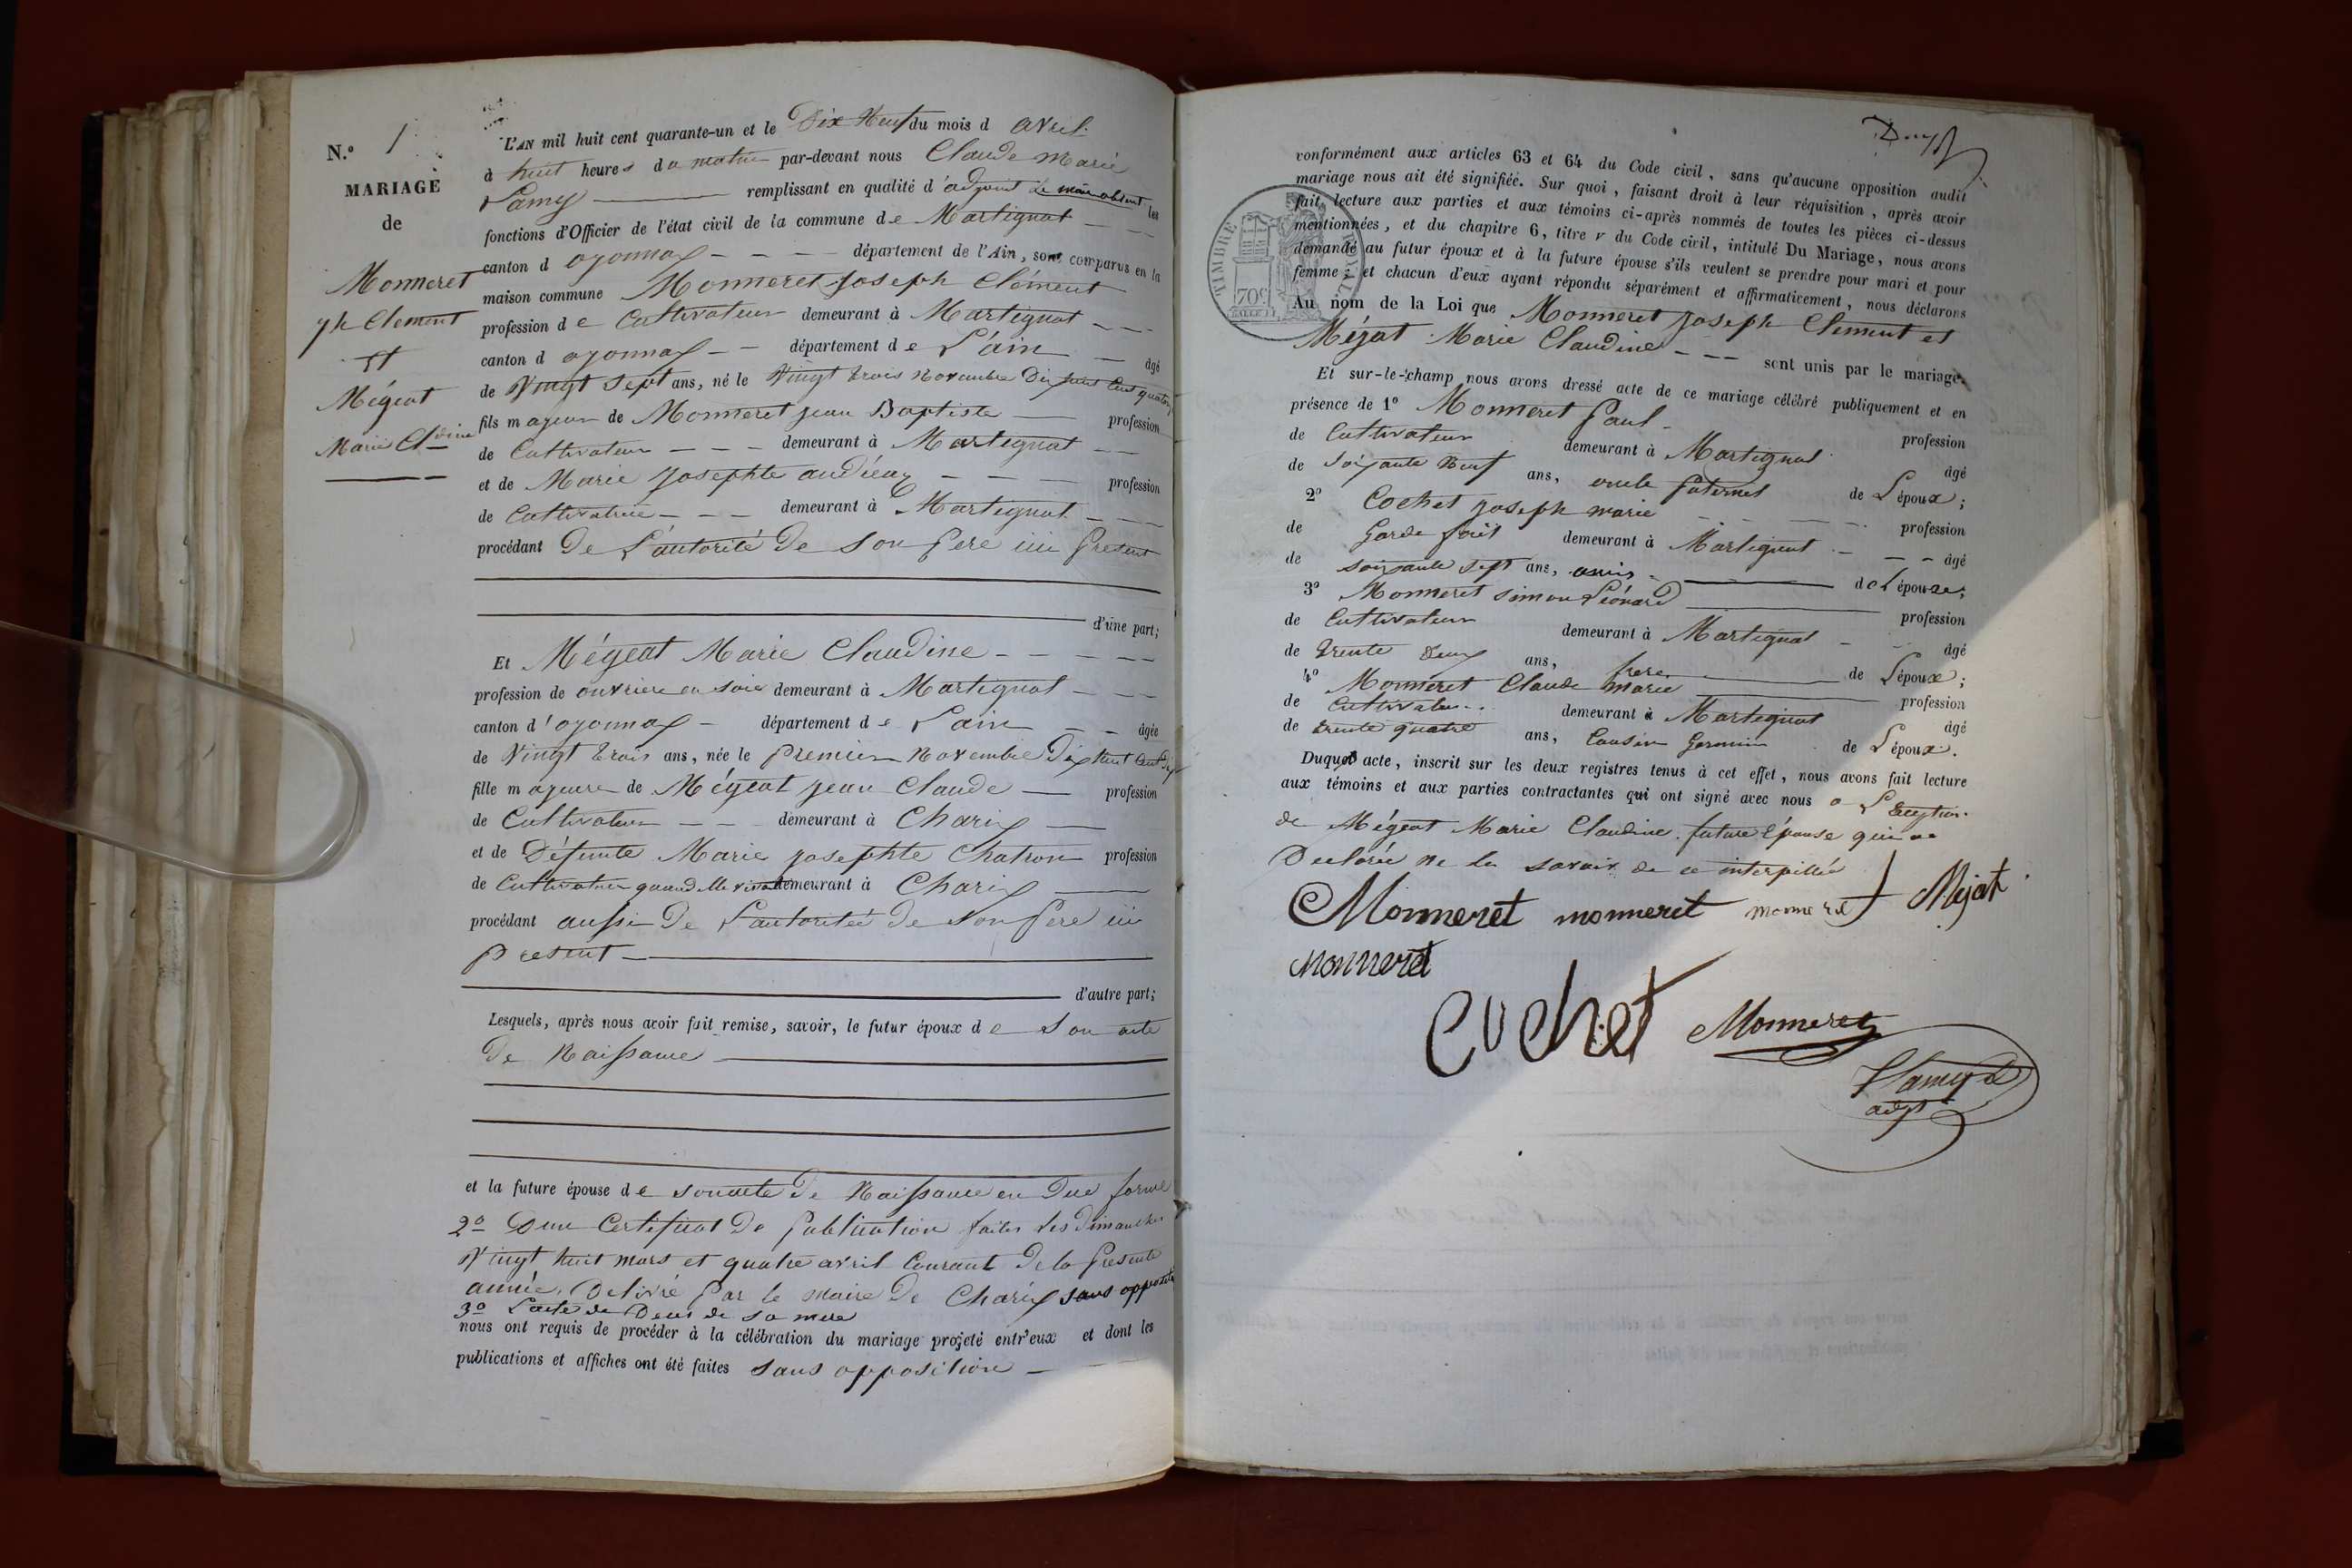 N.º 1
MARIAGE
de
Monneret
ph Clement
et
Mégeat
Marie Cldine
L'AN mil huit cent quarante-un et le Dix Neuf du mois d avril
à huit heures du matin par-devant nous Claude Marie
Lamy remplissant en qualité d'adjoint le maire absent les
fonctions d'Officier de l'état civil de la commune de Martignat
canton d oyonnax département de l'Ain, sont comparus en la
maison commune Monneret joseph Clément
profession de Cultivateur demeurant à Martignat
canton d oyonnax département de L'ain âgé
de Vingt sept ans, né le Vingt trois Novembre Dix huit cent quatorze
fils majeur de Monneret jean Baptiste profession
de Cultivateur demeurant à Martignat
et de Marie josephte profession
de Cultivatrice demeurant à Martignat
procédant De L'autorité De Son Pere ici Present
d'une part;
Et Mégeat Marie Claudine
profession de ouvriere en soie demeurant à Martignat
canton d'oyonnax département de L'ain âgée
de Vingt trois ans, née le Premier Novembre Dix huit Cent Dix
fille majeure de Mégeat jean Claude profession
de Cultivateur demeurant à Charix
et de Défunte Marie josephte Chatron profession
de Cultivatrice quand elle vivait demeurant à Charix
procédant aussi De L'autoritée De Son Pere ici
Present
d'autre part;
Lesquels, après nous avoir fait remise, savoir, le futur époux de Son acte
De Naissance
et la future épouse de son acte De Naissance en Due forme
2º D'un Certificat De Publication faites les Dimanches
Vingt huit mars et quatre avril Courant De la Presente
année, Delivré Par le maire De Charix sans opposition
3º L'acte de Deces de sa mere
nous ont requis de procéder à la célébration du mariage projeté entr'eux et dont les
publications et affiches ont été faites sans opposition
conformément aux articles 63 et 64 du Code civil, sans qu'aucune opposition audit
mariage nous ait été signifiée. Sur quoi, faisant droit à leur réquisition, après avoir
fait lecture aux parties et aux témoins ci-après nommés de toutes les pièces ci-dessus
mentionnées, et du chapitre 6, titre v du Code civil, intitulé Du Mariage, nous avons
demandé au futur époux et à la future épouse s'ils veulent se prendre pour mari et pour
femme; et chacun d'eux ayant répondu séparément et affirmativement, nous déclarons
TIMBRE ROYAL
70c
Au nom de la Loi que Monneret joseph Clement et
Méjat Marie Claudine sont unis par le mariage.
Et sur-le-champ nous avons dressé acte de ce mariage célébré publiquement et en
présence de 1º Monneret Paul profession
de Cultivateur demeurant à Martignat âgé
de Soixante Neuf ans, oncle Paternel de L'époux;
2º Cochet joseph marie profession
de Garde forêt demeurant à Martignat âgé
de soixante sept ans, amis de L'épouse;
3º Monneret simon Léonard profession
de Cultivateur demeurant à Martignat âgé
de trente Deux ans, frere de L'époux;
4º Monneret Claude marie profession
de Cultivateur demeurant à Martignat âgé
de trente quatre ans, Cousin Germain de L'époux.
Duquel acte, inscrit sur les deux registres tenus à cet effet, nous avons fait lecture
aux témoins et aux parties contractantes qui ont signé avec nous a L'Exception
de Mégeat Marie Claudine future Epouse qui a
Declarée ne le savoir de ce interpillée
Monneret monneret monneret Mejat
Monneret
Cochet Monneret
Lamy
adjt